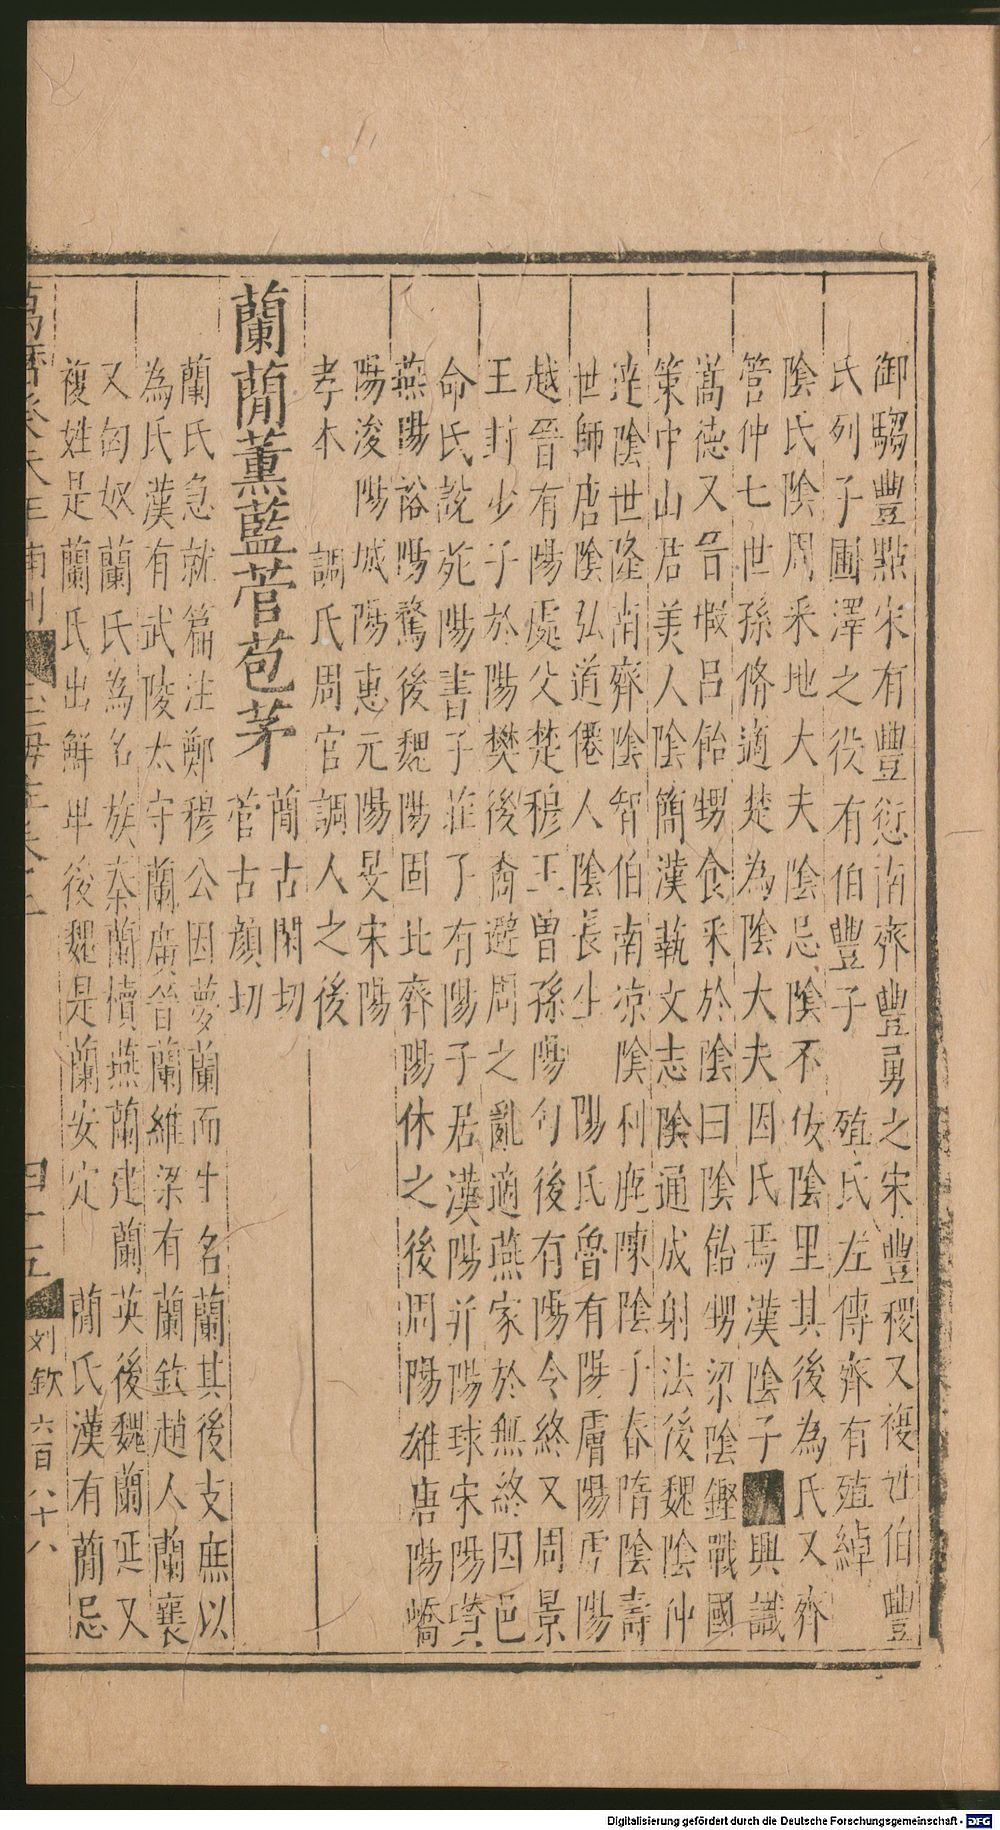 御騶豐點宋有豐愆南齊豐勇之宋豐稷又複姓伯豐
氏列子圃澤之役有伯豐子　殖氏左傳齊有殖綽
陰氏陰周釆地大夫陰忌陰不佞陰里其後為氏又齊
管仲七世孫脩適楚為陰大夫因氏焉漢陰子興識
嵩德又晉瑕呂飴甥食釆於陰曰陰飴甥梁陰鏗戰國
策中山君美人陰簡漢執文志陰通成射法後魏陰仲
逹陰世隆南齊陰智伯南凉陰利鹿陳陰子春隋陰壽
世師唐陰弘道僊人陰長生　陽氏魯有陽膚陽虎陽
越晉有陽處父楚穆王曾孫陽匄後有陽令終又周景
王封少子於陽樊後裔避周之亂適燕家於無終因邑
命氏說苑陽書子莊子有陽子居漢陽并陽球宋陽瓚
燕陽裕陽騖後魏陽固北齊陽休之後周陽雄唐陽嶠
陽浚陽城陽惠元陽旻宋陽
孝本　調氏周官調人之後
蘭蕳薰藍菅苞茅
蕳古閑切
菅古顔切
蘭氏急就篇注鄭穆公因夢蘭而生名蘭其後支庶以
為氏漢有武陵太守蘭廣晉蘭維梁有蘭欽趙人蘭襄
又匈奴蘭氏為名族秦蘭犢燕蘭建蘭英後魏蘭延又
複姓是蘭氏出鮮卑後魏是蘭安定　蕳氏漢有蕳忌
萬曆癸未
四十五
刘欽
六百八十八
Digitalisierung gefördert durch die Deutsche Forschungsgemeinschaft - DFG